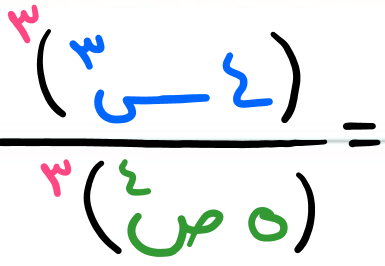 (٤ س٣)٣ =
(٥ ص٤)٣